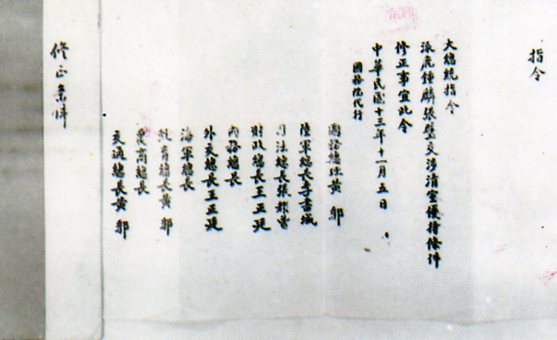 指令
大總統指令
派鹿鍾麟張璧交涉清室優待條件
修正事宜此令
中華民國十三年十一月五日
國務院代行
國務總理黃郛
陸軍總長李書城
司法總長張耀曾
財政總長王正廷
內務總長
外交總長王正廷
海軍總長
教育總長黃郛
農商總長
交通總長黃郛
修正条件